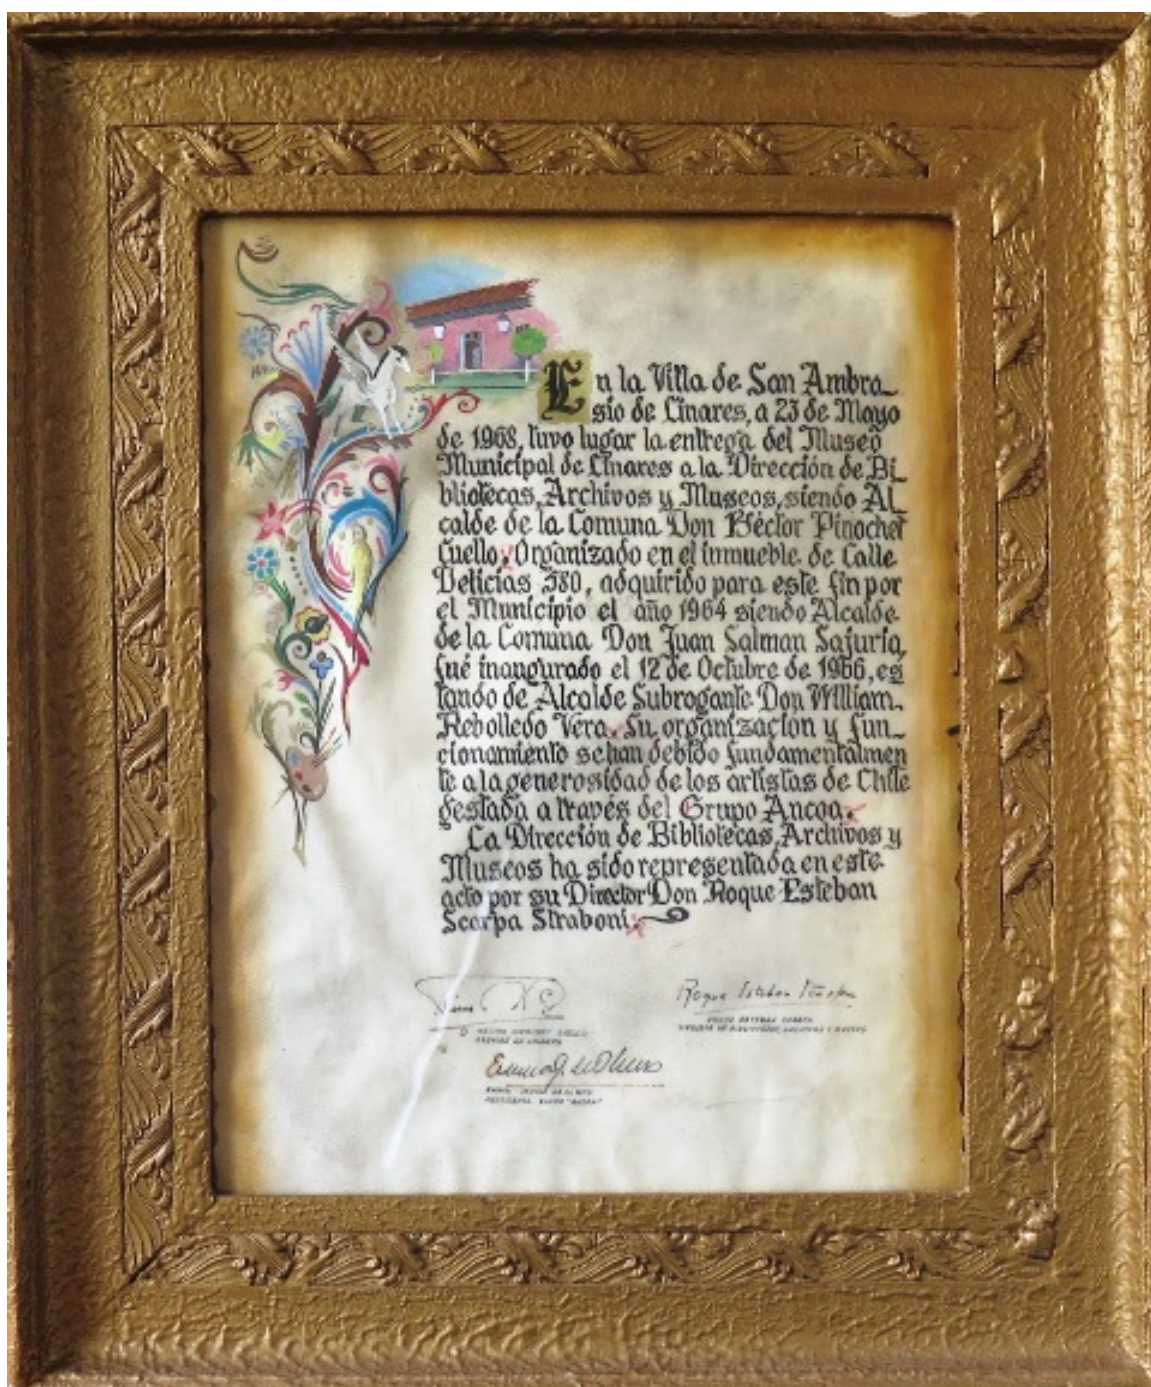 En la Villa de San Ambro_
sio de Linares, a 23 de Mayo
de 1968, tuvo lugar la entrega del Museo
Municipal de Linares a la Dirección de Bi_
bliotecas, Archivos y Museos, siendo Al_
calde de la Comuna Don Héctor Pinochet
Cuello. Organizado en el inmueble de Calle
Delicias 580, adquirido para este fin por
el Municipio el año 1964 siendo Alcalde
de la Comuna Don Juan Salman Sajuria,
fué inaugurado el 12 de Octubre de 1966, es
tando de Alcalde Subrogante Don William
Rebolledo Vera. Su organización y fun_
cionamiento se han debido fundamentalmen
te a la generosidad de los artistas de Chile
gestada a través del Grupo Ancoa.
La Dirección de Bibliotecas, Archivos y
Museos ha sido representada en este
acto por su Director Don Roque Esteban
Scarpa Straboni.
Roque Esteban Scarpa
HECTOR PINOCHET CUELLO
ALCALDE DE LINARES
ROQUE ESTEBAN SCARPA
DIRECTOR DE BIBLIOTECAS, ARCHIVOS Y MUSEOS
PRESIDENTA GRUPO "ANCOA"